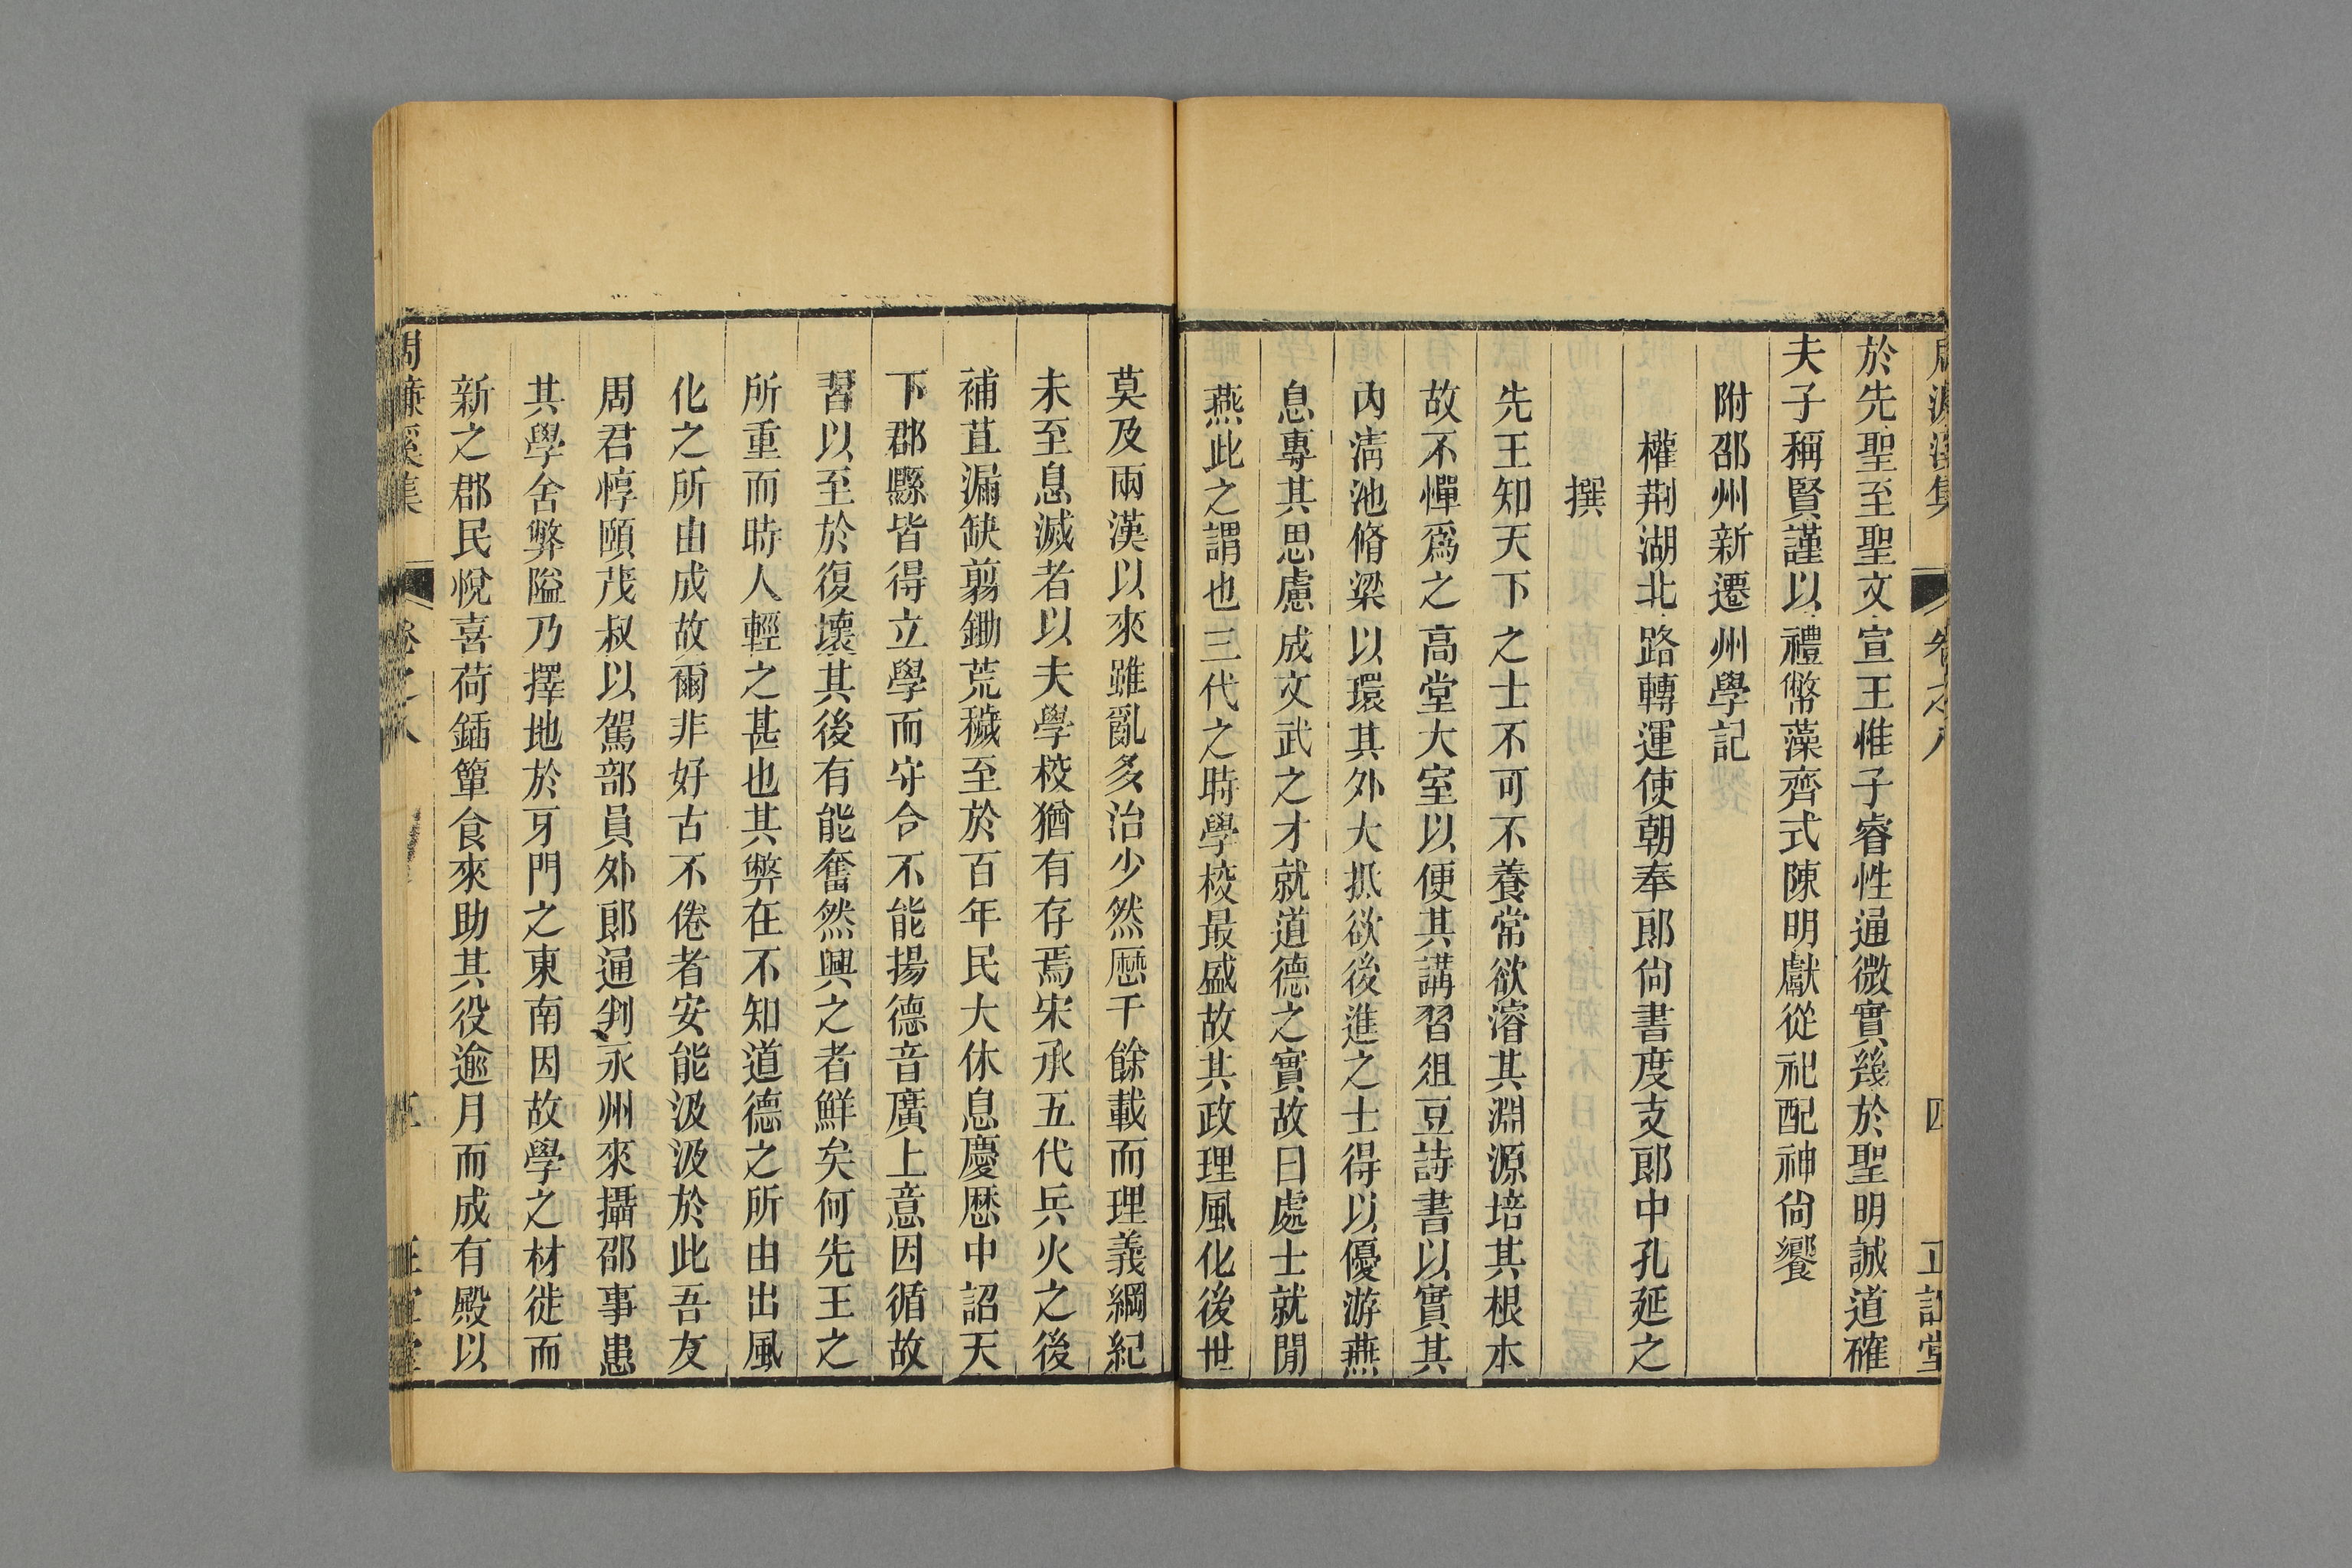 於先聖至聖文宣王惟子睿性通微實幾於聖明誠道確
夫子稱賢謹以禮幣藻齊式陳明獻從祀配神尙饗
附邵州新遷州學記
權荆湖北路轉運使朝奉郞尙書度支郞中孔延之
撰
先王知天下之士不可不養常欲濬其淵源培其根本
故不憚爲之高堂大室以便其講習俎豆詩書以實其
內淸池脩梁以環其外大抵欲後進之士得以優游燕
息專其思慮成文武之才就道德之實故曰處士就閒
燕此之謂也三代之時學校最盛故其政理風化後世
莫及兩漢以來雖亂多治少然歷千餘載而理義綱紀
未至息滅者以夫學校猶有存焉宋承五代兵火之後
補苴漏缺翦鋤荒穢至於百年民大休息慶歷中詔天
下郡縣皆得立學而守令不能揚德音廣上意因循故
習以至於復壞其後有能奮然興之者鮮矣何先王之
所重而時人輕之甚也其弊在不知道德之所由出風
化之所由成故爾非好古不倦者安能汲汲於此吾友
周君惇頤茂叔以駕部員外郞通判永州來攝邵事患
其學舍弊隘乃擇地於牙門之東南因故學之材徙而
新之郡民悅喜荷鍤簞食來助其役逾月而成有殿以
周濂溪集 卷之八